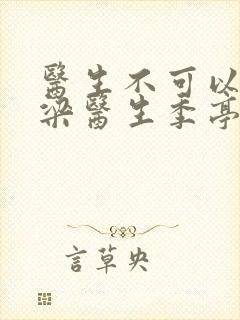 醫生不可以
梁醫生季亭
言草央